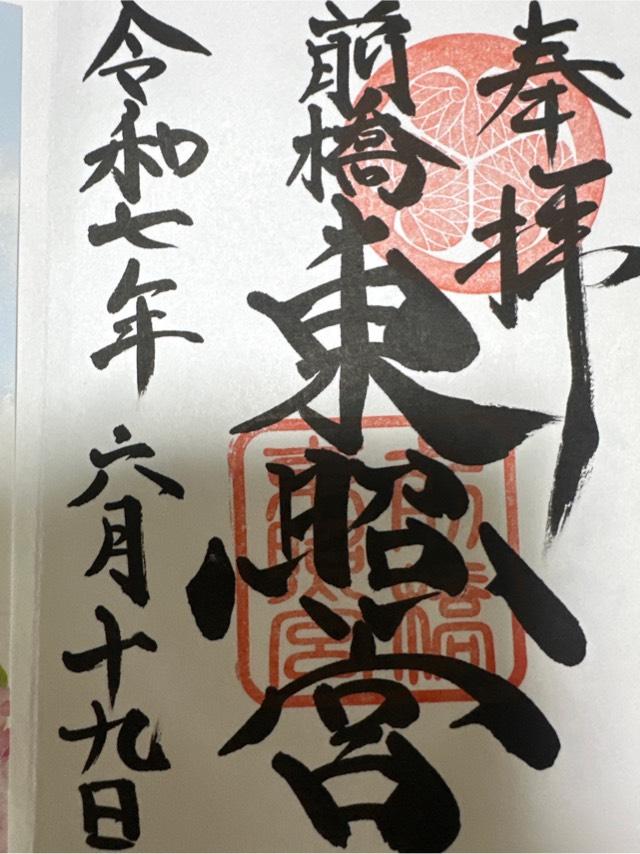 奉拝
前橋東照宮
令和七年六月十九日
前橋東照宮